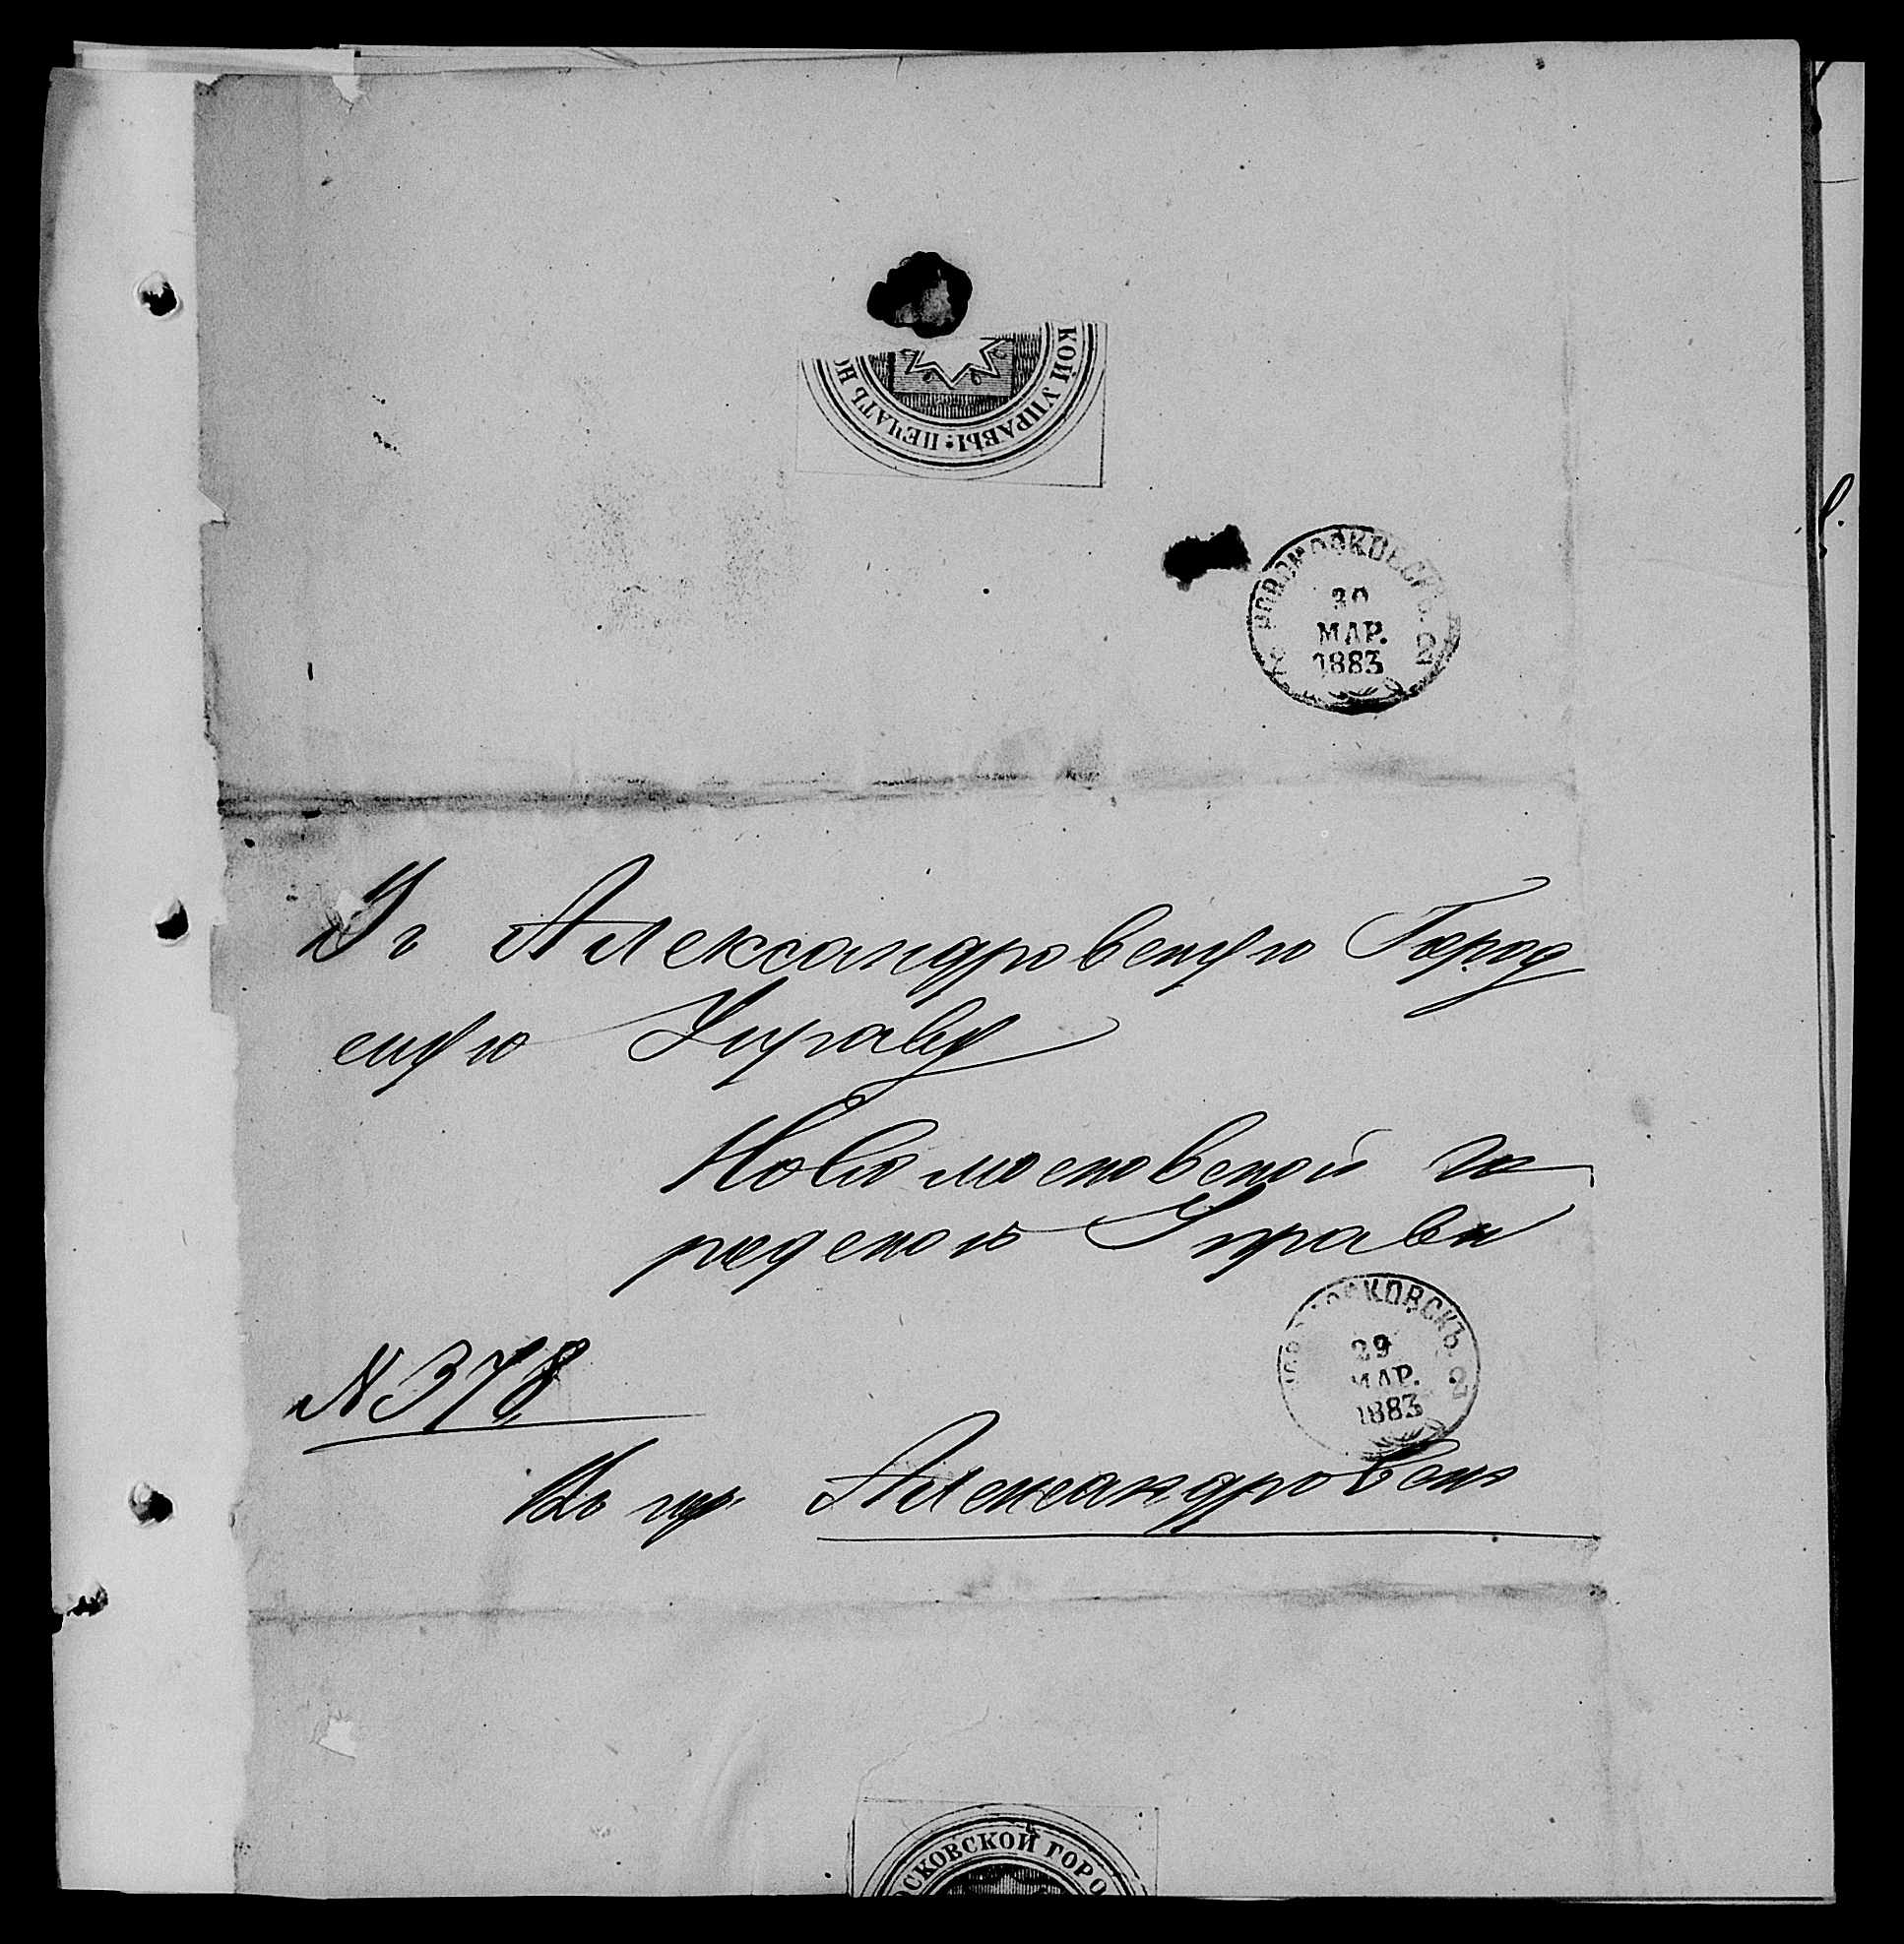 КОЙ УПРАВЫ • ПЕЧАТЬ НО
НОВОМОСКОВСКЪ. 2
30
МАР.
1883
Въ Александровскую Город
скую Управу
Новомосковской го
родской Управы
НОВОМОСКОВСКЪ. 2
29
МАР.
1883
№ 378
Въ гор. Александровск
ОСКОВСКОЙ ГОРО